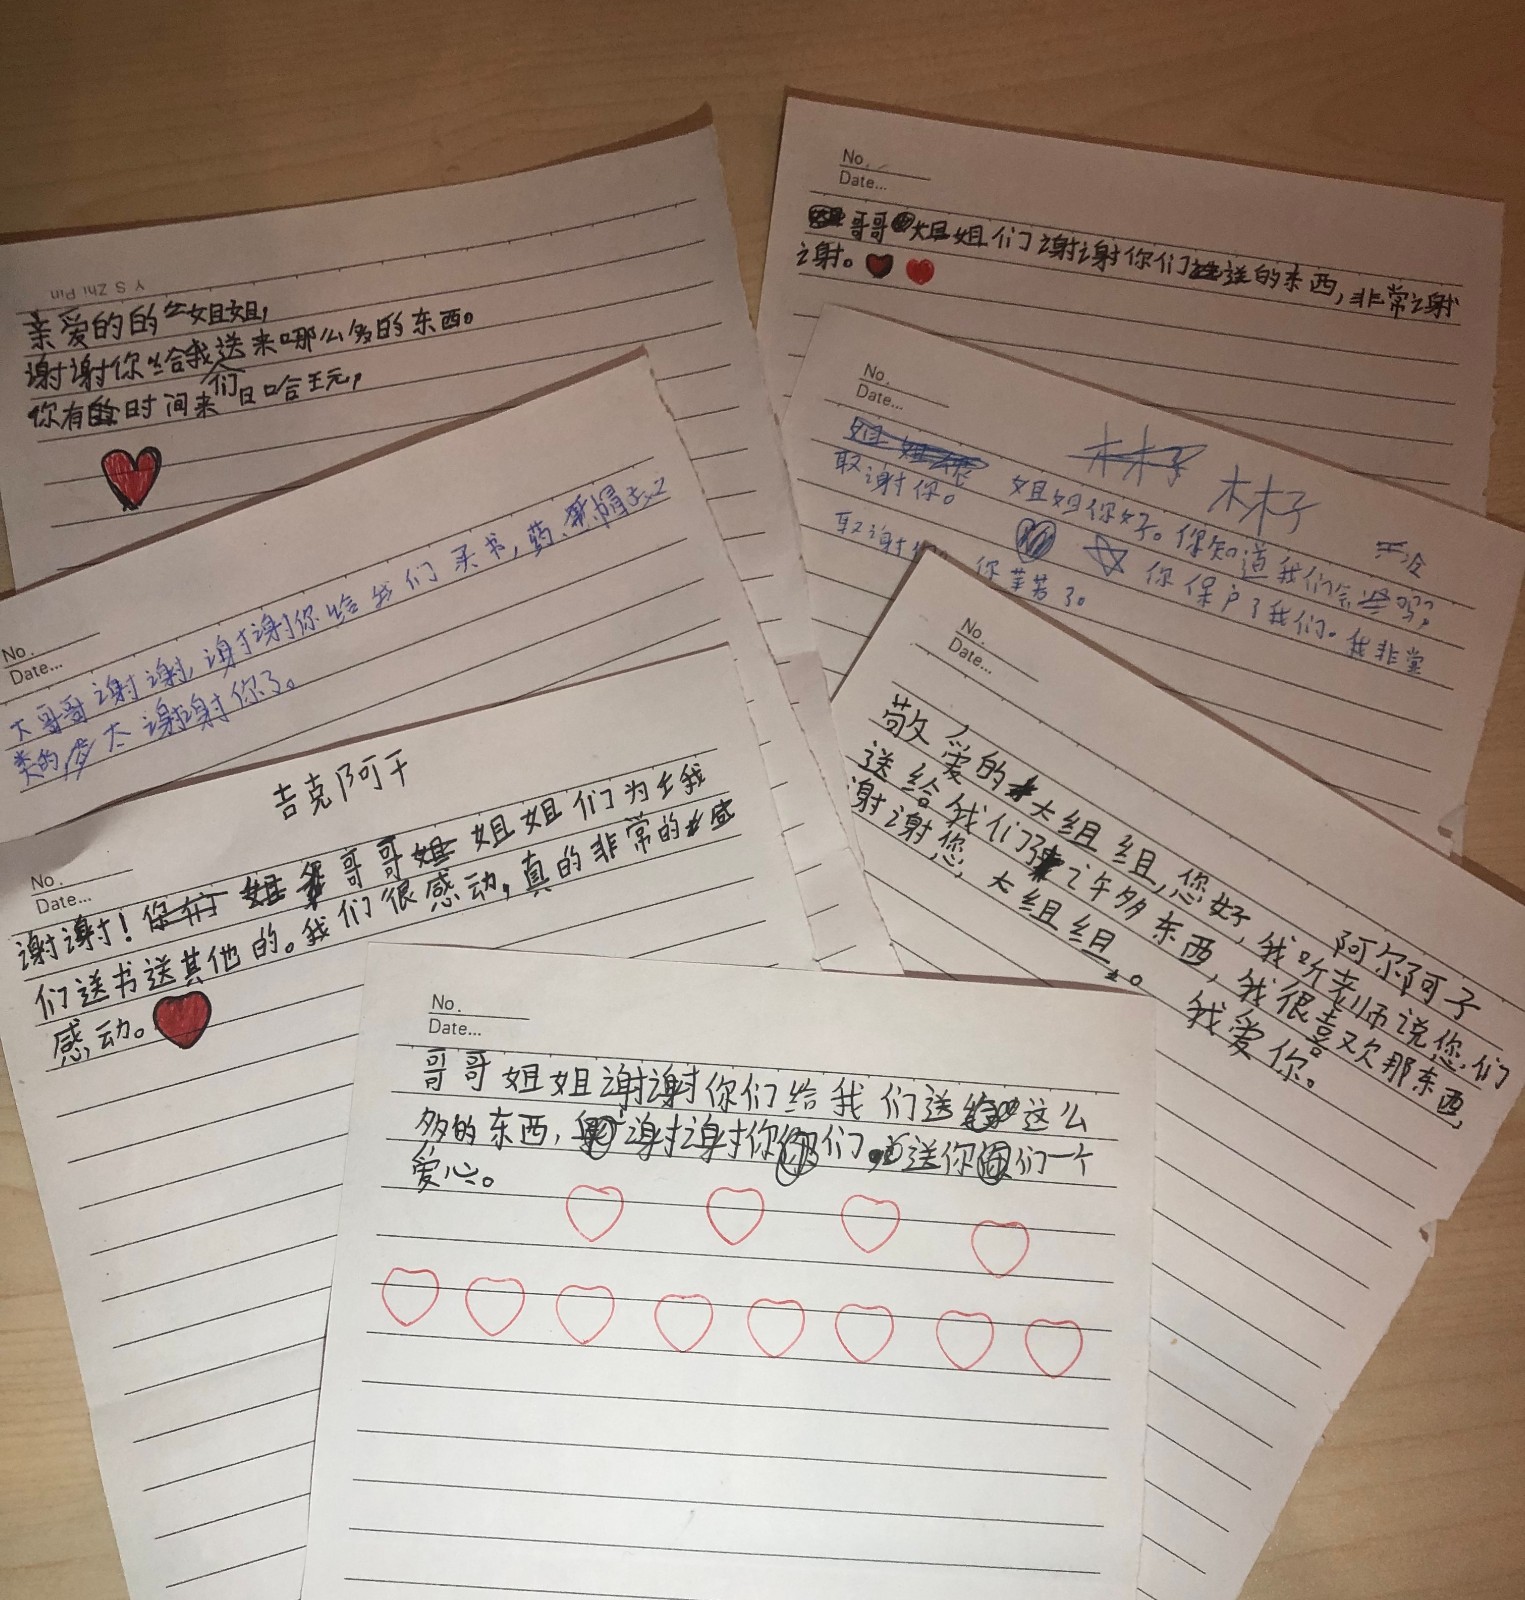 Y S Zhi Pin
亲爱的的姐姐,
谢谢你给我送来哪么多的东西。
你有时间来们日哈玩,
No.
Date...
哥哥姐姐们谢谢你们送的东西,非常谢
谢。
No.
Date...
大哥哥谢谢,谢谢你给我们买书,药、帽子
类的 太谢谢你了。
No.
Date...
林子
姐姐你好。你知道我们 吗?
取谢你。 你保户了我们。我非常
取谢 你辛苦了。
吉克阿干
No.
Date...
谢谢! 哥哥 姐姐们为我
们送书送其他的。我们很感动,真的非常的感
感动。
No.
Date...
阿尔阿子
敬爱的大组组,您好,我听老师说您们
送给我们了许多东西,我很喜欢那东西,
谢谢您,大组组。 我爱你。
No.
Date...
哥哥姐姐谢谢你们给我们送这么
多的东西,谢谢你们。送你们一个
爱心。